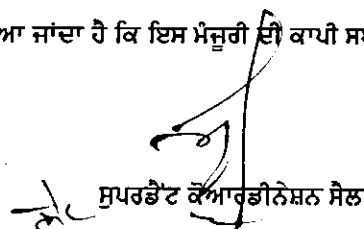 ਆ ਜਾਂਦਾ ਹੈ ਕਿ ਇਸ ਮੰਜੂਰੀ ਦੀ ਕਾਪੀ
ਸੁਪਰਡੈਂਟ ਕੋਆਰਡੀਨੇਸ਼ਨ ਸੈਲ